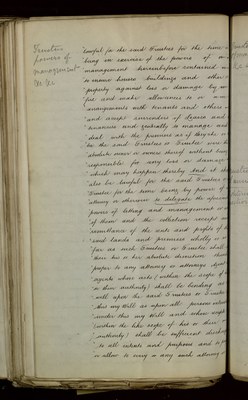 Trustees
powers of
management
&c &c
lawful for the said Trustees for the time
being in exercise of the powers of
management hereinbefore contained
to insure houses buildings and other
property against loss or damage by
fire and make allowances to or
arrangements with tenants and others
and accept surrenders of leases and
tenancies and generally to manage and
deal with the premises as if they he
the said Trustees or Trustee were the
absolute owner or owners thereof without
responsible for any loss or damage
which may happen thereby And it
also be lawful for the said Trustees or
Trustee for the time being by power of
attorney or otherwise to delegate the
powers of letting and management or
of them and the collection receipt
remittance of the rents and profits of
said lands and premises wholly or
far as such Trustees or Trustee shall
their his or her absolute discretion
proper to any attorney or attorneys
agents whose acts (within the scope of
or their authority) shall be binding as
well upon the said Trustees or Trustee
this my Will as upon all persons
under this my Will and whose receipts
(within the like scope of his or their
authority) shall be sufficient discharges
to all intents and purposes and to
or allow to every or any such attorney